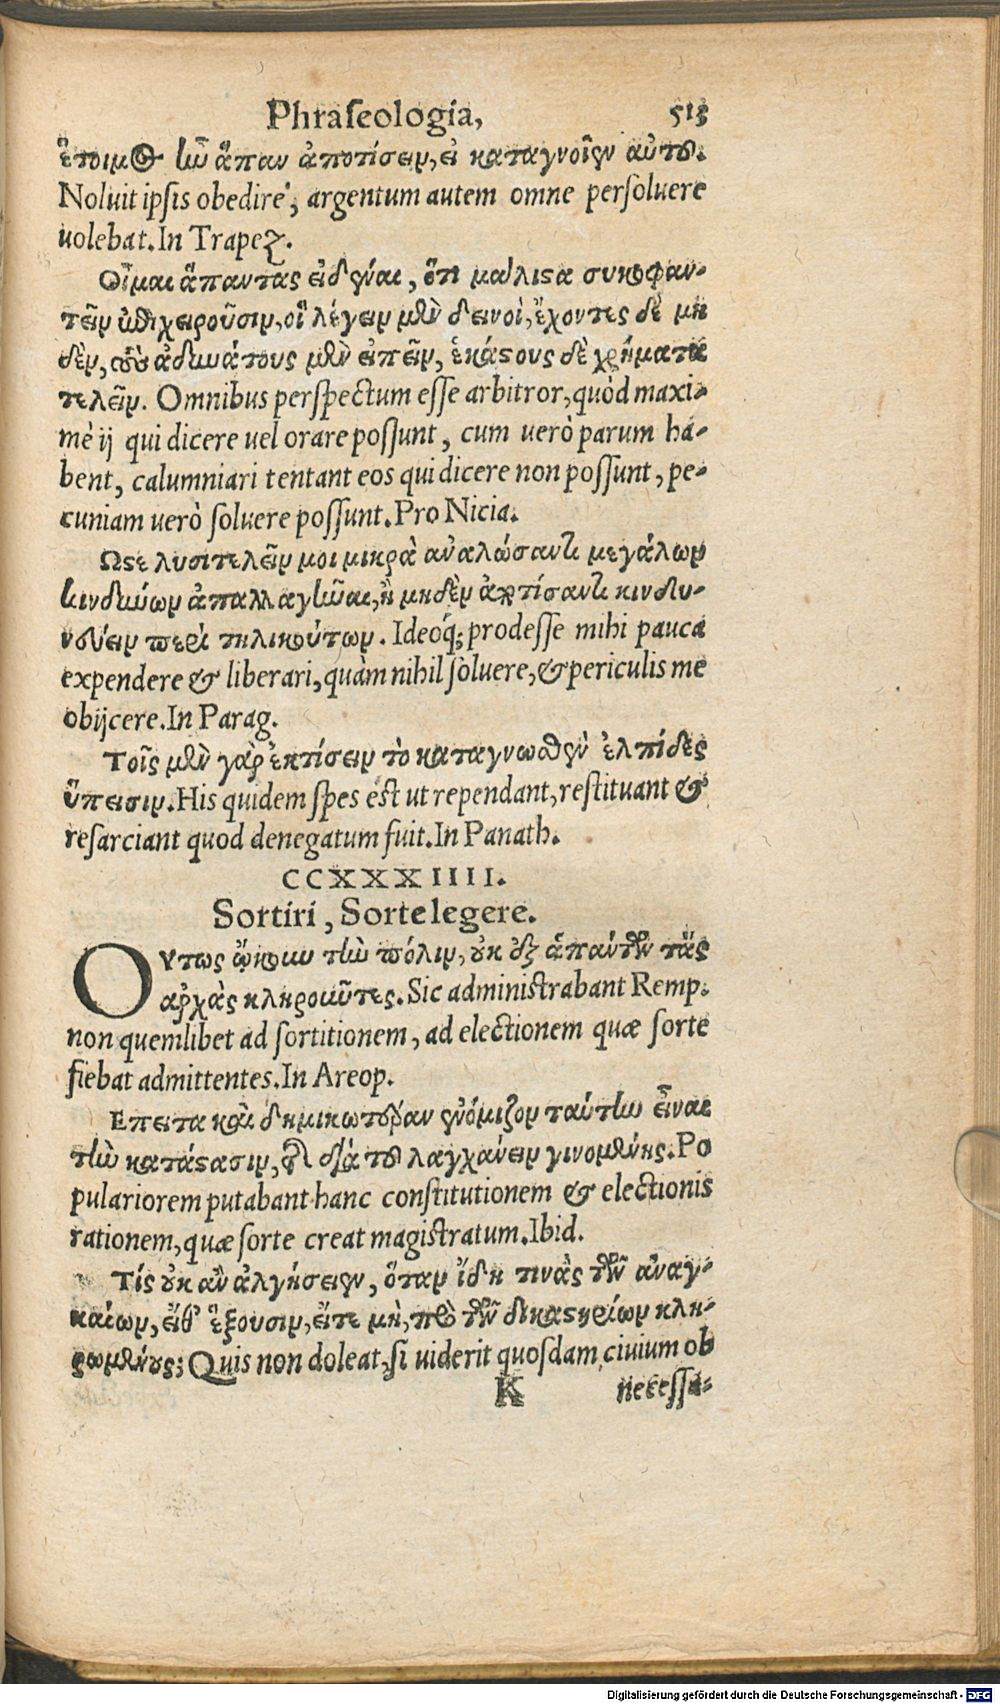 Phraſeologia, 513
ἕτοιμος ἦν ἅπαν ἀποτίσειν, εἰ καταγνοῖεν αὐτοῦ.
Noluit ipſis obedire, argentum autem omne perſoluere
uolebat. In Trapez.
Οἶμαι ἅπαντας εἰδέναι, ὅτι μάλιστα συκοφαν-
τεῖν ἐπιχειροῦσιν, οἳ λέγειν μὲν δεινοὶ, ἔχοντες δὲ μη
δὲν, τοὺς ἀδυνάτους μὲν εἰπεῖν, ἑκάστους δὲ χρήματα
τελεῖν. Omnibus perſpectum eſſe arbitror, quòd maxi-
mè ij qui dicere uel orare poſſunt, cum uerò parum ha-
bent, calumniari tentant eos qui dicere non poſſunt, pe-
cuniam uerò ſoluere poſſunt. Pro Nicia.
Ωστε λυσιτελεῖν μοι μικρὰ ἀναλώσαντι μεγάλων
κινδύνων ἀπαλλαγῆναι, ἢ μηδὲν ἀποτίσαντι κινδυ-
νεύειν περὶ τηλικούτων. Ideoq́; prodeſſe mihi pauca
expendere & liberari, quàm nihil ſoluere, & periculis me
obijcere. In Parag.
Τοῖς μὲν γὰρ ἐκτίσειν τὸ καταγνωσθὲν ἐλπίδες
ὕπεισιν. His quidem ſpes eſt ut rependant, reſtituant &
reſarciant quod denegatum fuit. In Panath.
CCXXXIIII.
Sortiri, Sorte legere.
Οὕτως ᾤκουν τὴν πόλιν, οὐκ ἐξ ἁπάντων τὰς
ἀρχὰς κληροῦντες. Sic adminiſtrabant Remp.
non quemlibet ad ſortitionem, ad electionem quæ ſorte
fiebat admittentes. In Areop.
Επειτα καὶ δημικωτέραν ἐνόμιζον ταύτην εἶναι
τὴν κατάστασιν, ἢ διὰ τοῦ λαγχάνειν γινομένης. Po
pulariorem putabant hanc conſtitutionem & electionis
rationem, quæ ſorte creat magiſtratum. Ibid.
Τίς οὐκ ἂν ἀλγήσειεν, ὅταν ἴδη τινὰς τῶν ἀναγ-
καίων, εἴθ' ἕξουσιν, εἴτε μὴ, πρὸ τῶν δικαστηρίων κλη-
ρωμένους; Quis non doleat, ſi uiderit quoſdam ciuium ob
K neceſſa-
Digitalisierung gefördert durch die Deutsche Forschungsgemeinschaft - DFG